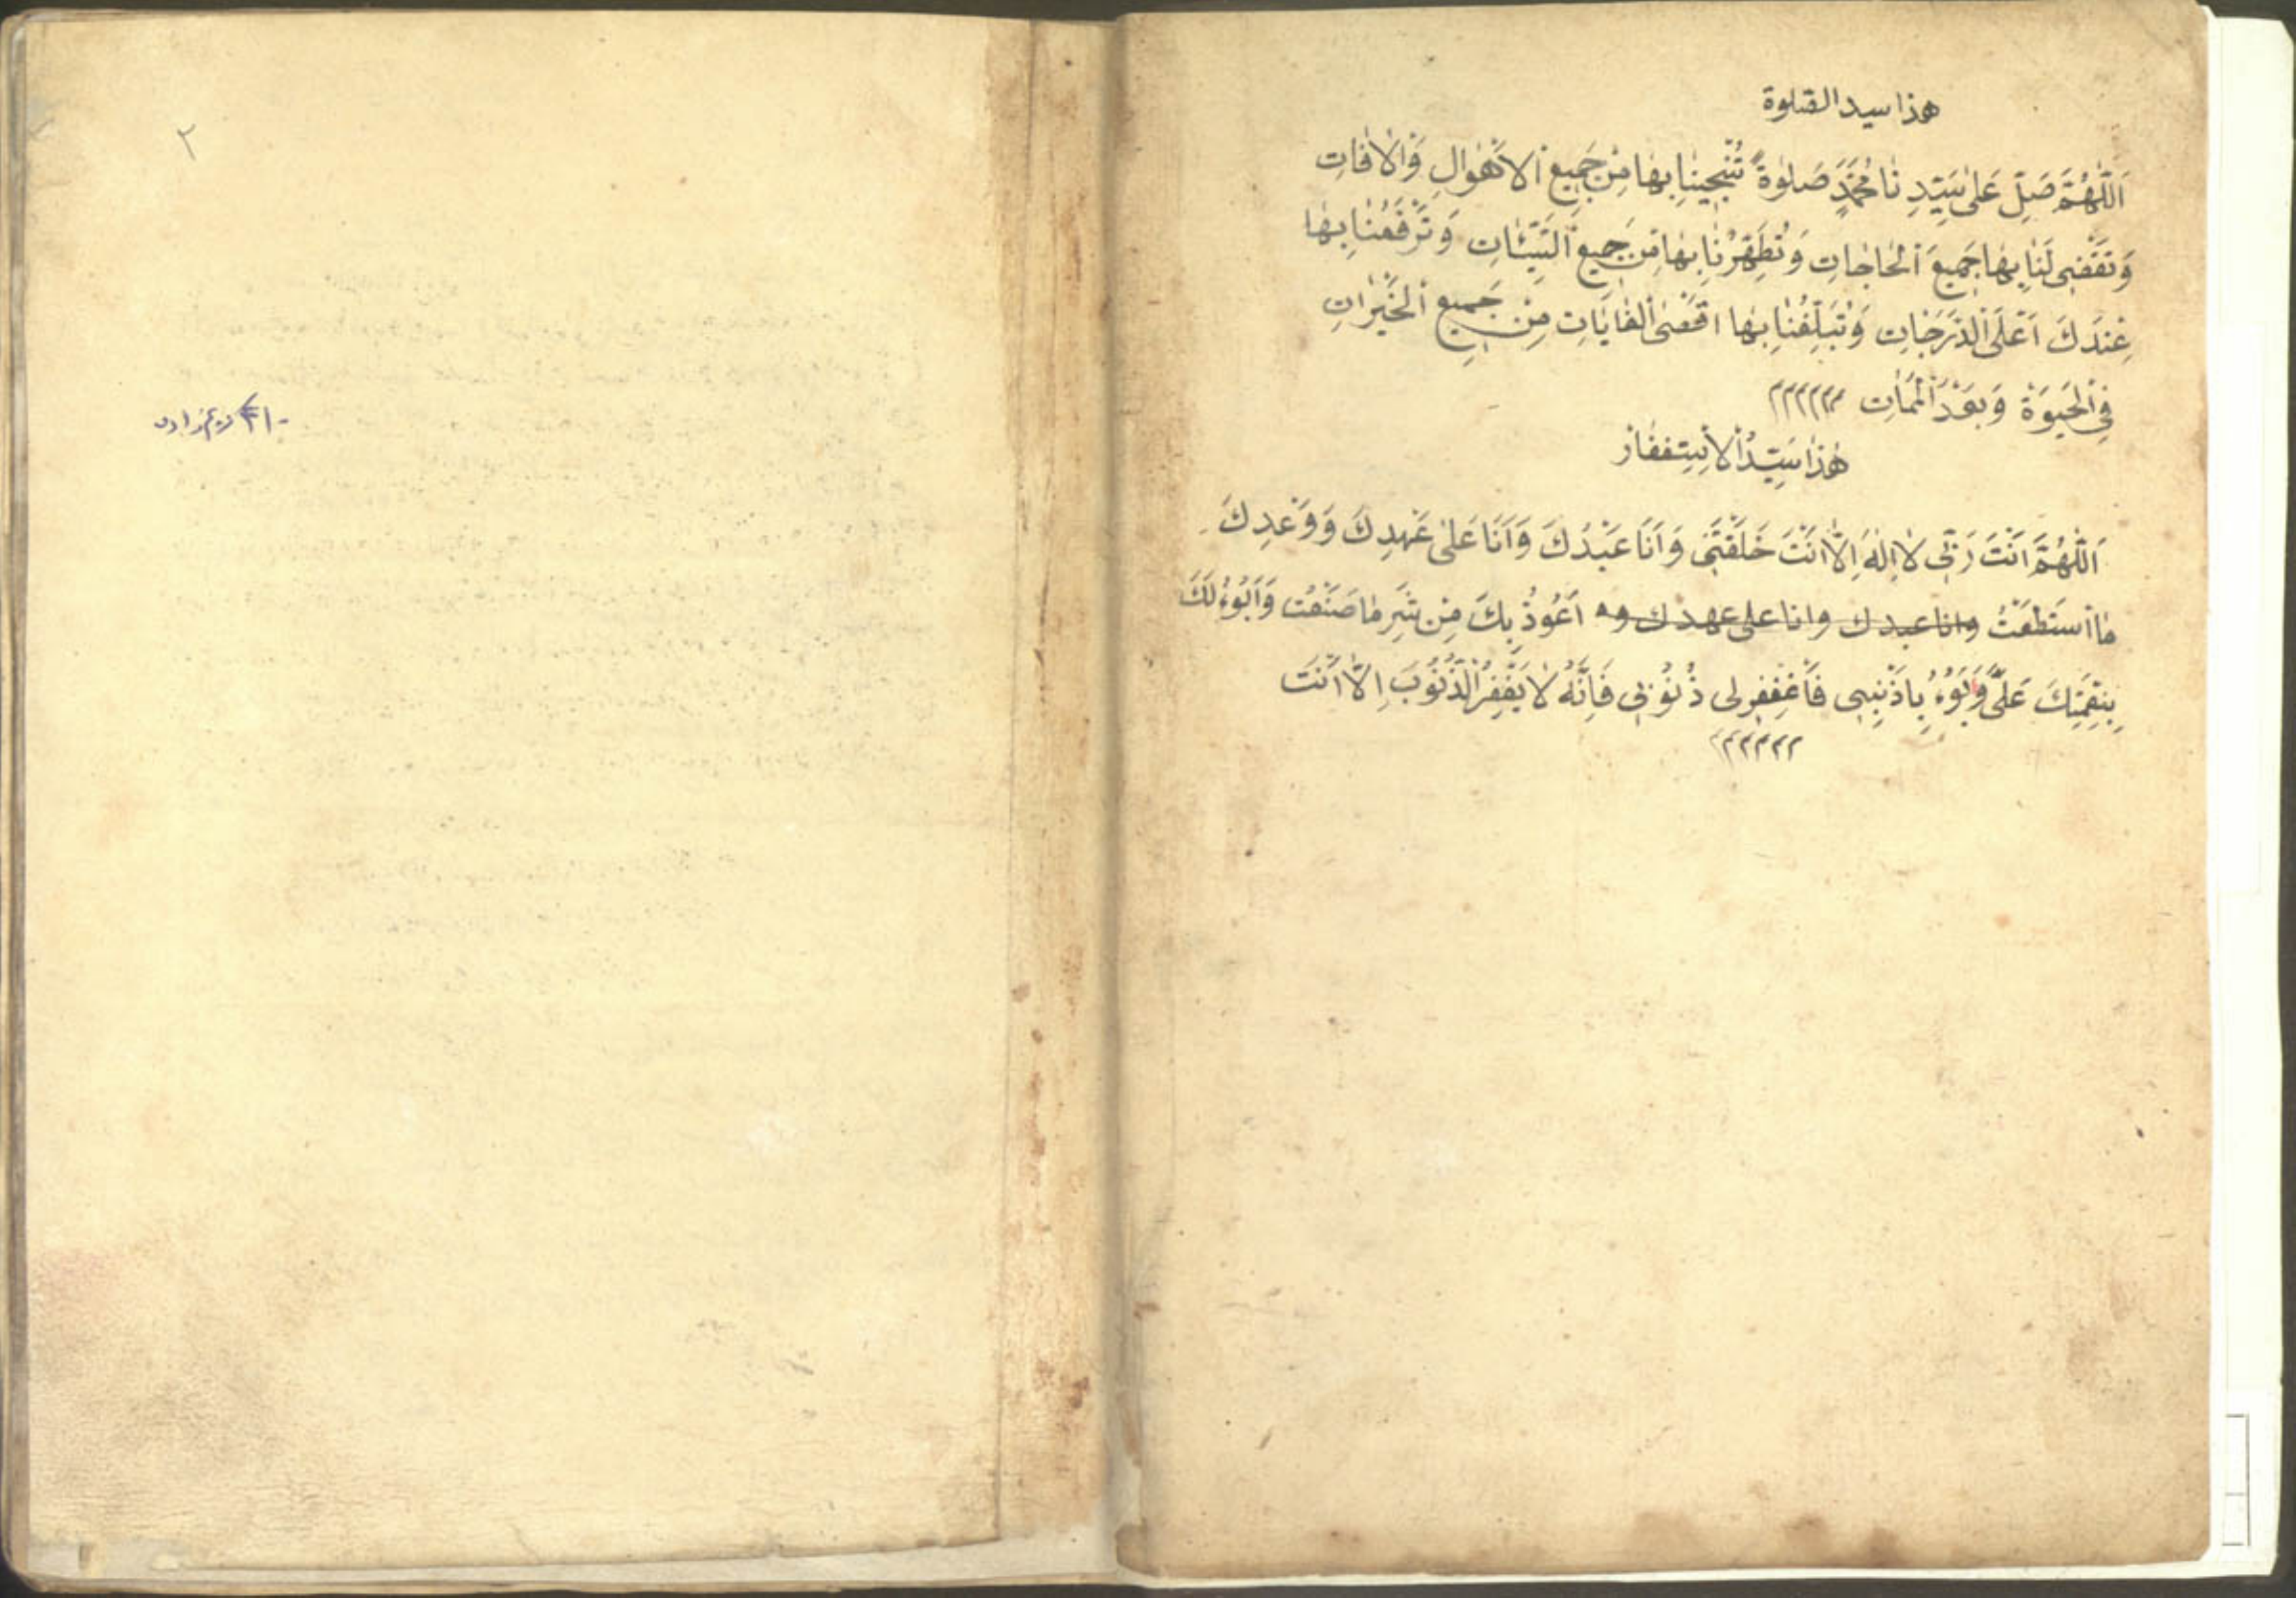 هذا سيد الصلوة
اَللّٰهُمَّ صَلِّ عَلٰى سَيِّدِنَا مُحَمَّدٍ صَلٰوةً تُنْجِينَا بِهَا مِنْ جَمِيعِ اْلاَهْوَالِ وَاْلاٰفَاتِ
وَتَقْضِى لَنَا بِهَا جَمِيعَ اْلحَاجَاتِ وَتُطَهِّرُنَا بِهَا مِنْ جَمِيعِ السَّيِّئَاتِ وَتَرْفَعُنَا بِهَا
عِنْدَكَ اَعْلَى الدَّرَجَاتِ وَتُبَلِّغُنَا بِهَا اَقْصَى اْلغَايَاتِ مِنْ جَمِيعِ اْلخَيْرَاتِ
فِى اْلحَيٰوةِ وَبَعْدَ اْلمَمَاتِ م م م م م م
هٰذَا سَيِّدُ اْلاِسْتِغْفَارْ
اَللّٰهُمَّ اَنْتَ رَبِّى لاَ اِلٰهَ اِلاَّ اَنْتَ خَلَقْتَنِى وَاَنَا عَبْدُكَ وَاَنَا عَلٰى عَهْدِكَ وَوَعْدِكَ
مَا اسْتَطَعْتُ وانا عبدك وانا على عهدك و اَعُوذُ بِكَ مِنْ شَرِّ مَا صَنَعْتُ وَاَبُوءُ لَكَ
بِنِعْمَتِكَ عَلَىَّ وَاَبُوءُ بِاذَنْبِى فَاغْفِرْلِى ذُنُوبِى فَاِنَّهُ لاَ يَغْفِرُ الذُّنُوبَ اِلاَّ اَنْتَ
م م م م م م
٢